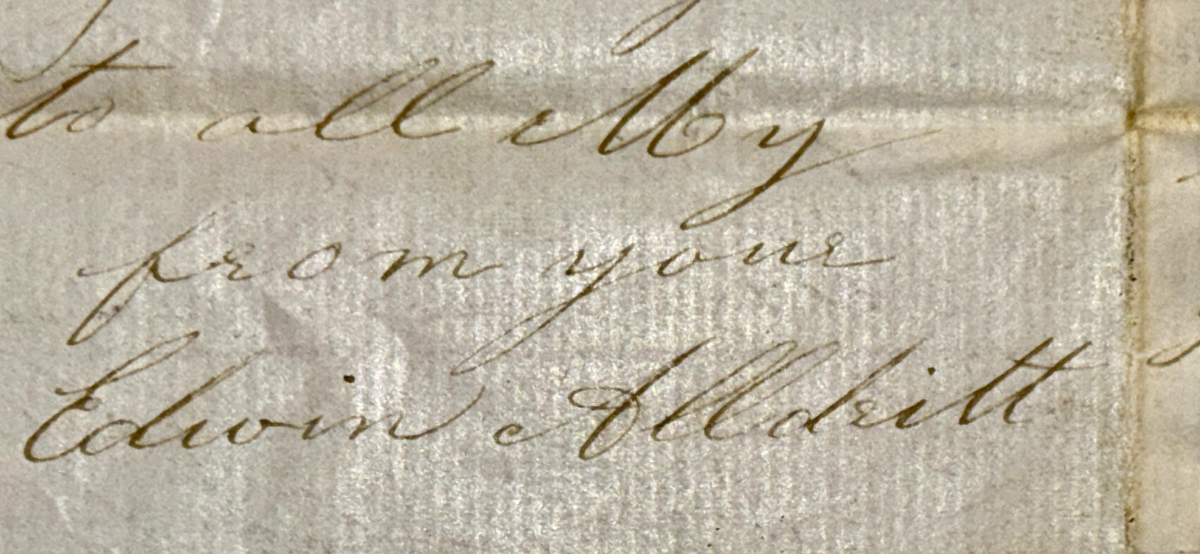 to all My
from your
Edwin Alldritt